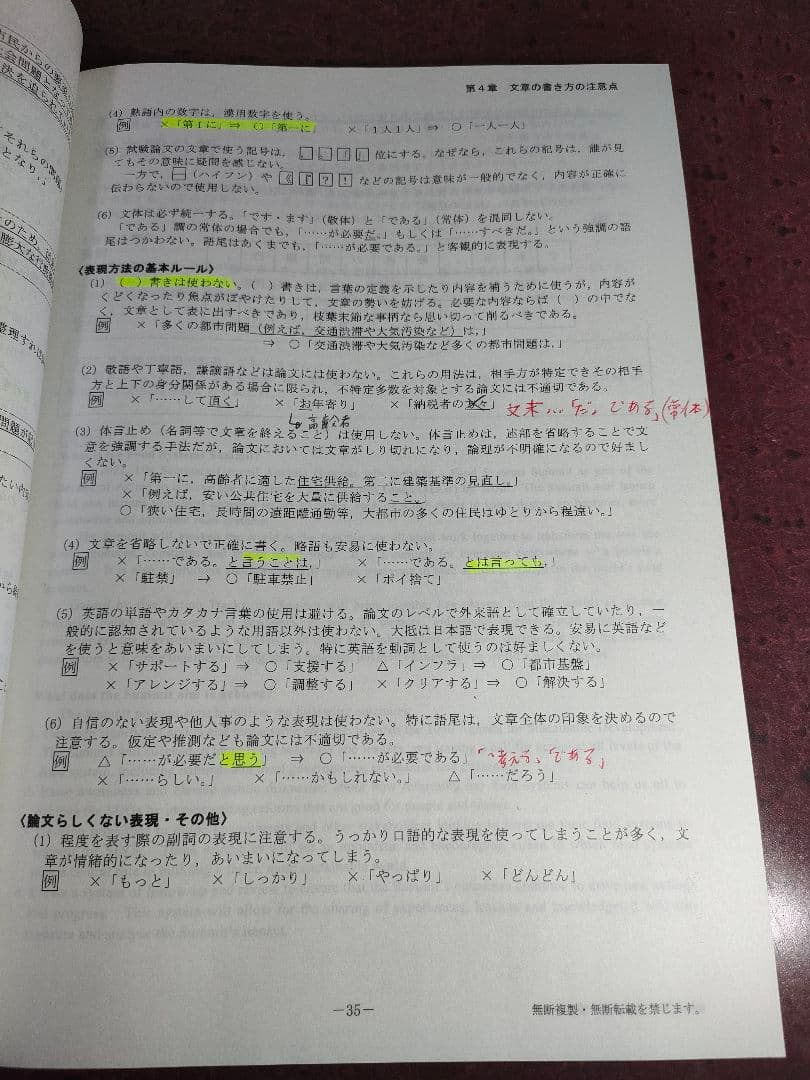 第４章　文章の書き方の注意点
(4) 熟語内の数字は，漢用数字を使う。
例　×「第１に」⇒　○「第一に」　×「１人１人」⇒　○「一人一人」
(5) 試験論文の文章で使う記号は，、。「」位にする。なぜなら，これらの記号は，誰が見
てもその意味に疑問を感じない。
一方で，－（ハイフン）や《『？！などの記号は意味が一般的でなく，内容が正確に
伝わらないので使用しない。
(6) 文体は必ず統一する。「です・ます」（敬体）と「である」（常体）を混同しない。
「である」調の常体の場合でも，「……が必要だ。」もしくは「……すべきだ。」という強調の語
尾はつかわない。語尾はあくまでも，「……が必要である。」と客観的に表現する。
〈表現方法の基本ルール〉
(1) （　）書きは使わない。（　）書きは，言葉の定義を示したり内容を補うために使うが，内容が
くどくなったり焦点がぼやけたりして，文章の勢いを妨げる。必要な内容ならば（　）の中でな
く，文章として表に出すべきであり，枝葉末節な事柄なら思い切って削るべきである。
例　×「多くの都市問題（例えば，交通渋滞や大気汚染など）は，」
⇒　○「交通渋滞や大気汚染など多くの都市問題は，」
(2) 敬語や丁寧語，謙譲語などは論文には使わない。これらの用法は，相手方が特定できその相手
方と上下の身分関係がある場合に限られ，不特定多数を対象とする論文には不適切である。
例　×「……して頂く」　×「お年寄り」　×「納税者の方々」
文末…「だ。である」(常体)
↳高齢者
(3) 体言止め（名詞等で文章を終えること）は使用しない。体言止めは，述部を省略することで文
意を強調する手法だが，論文においては文章がしり切れになり，論理が不明確になるので好まし
くない。
例　×「第一に，高齢者に適した住宅供給。第二に建築基準の見直し。」
×「例えば，安い公共住宅を大量に供給すること。」
○「狭い住宅，長時間の遠距離通勤等，大都市の多くの住民はゆとりから程遠い。」
(4) 文章を省略しないで正確に書く。略語も安易に使わない。
例　×「……である。と言うことは，」　×「……である。とは言っても，」
×「駐禁」　→　○「駐車禁止」　×「ポイ捨て」
(5) 英語の単語やカタカナ言葉の使用は避ける。論文のレベルで外来語として確立していたり，一
般的に認知されているような用語以外は使わない。大抵は日本語で表現できる。安易に英語など
を使うと意味をあいまいにしてしまう。特に英語を動詞として使うのは好ましくない。
例　×「サポートする」⇒　○「支援する」　△「インフラ」⇒　○「都市基盤」
×「アレンジする」⇒　○「調整する」　×「クリアする」⇒　○「解決する」
(6) 自信のない表現や他人事のような表現は使わない。特に語尾は，文章全体の印象を決めるので
注意する。仮定や推測なども論文には不適切である。
例　△「……が必要だと思う」　⇒　○「……が必要である」「考える、である」
×「……らしい。」　×「……かもしれない。」　△「……だろう」
〈論文らしくない表現・その他〉
(1) 程度を表す際の副詞の表現に注意する。うっかり口語的な表現を使ってしまうことが多く，文
章が情緒的になったり，あいまいになってしまう。
例　×「もっと」　×「しっかり」　×「やっぱり」　×「どんどん」
－35－
無断複製・無断転載を禁じます。